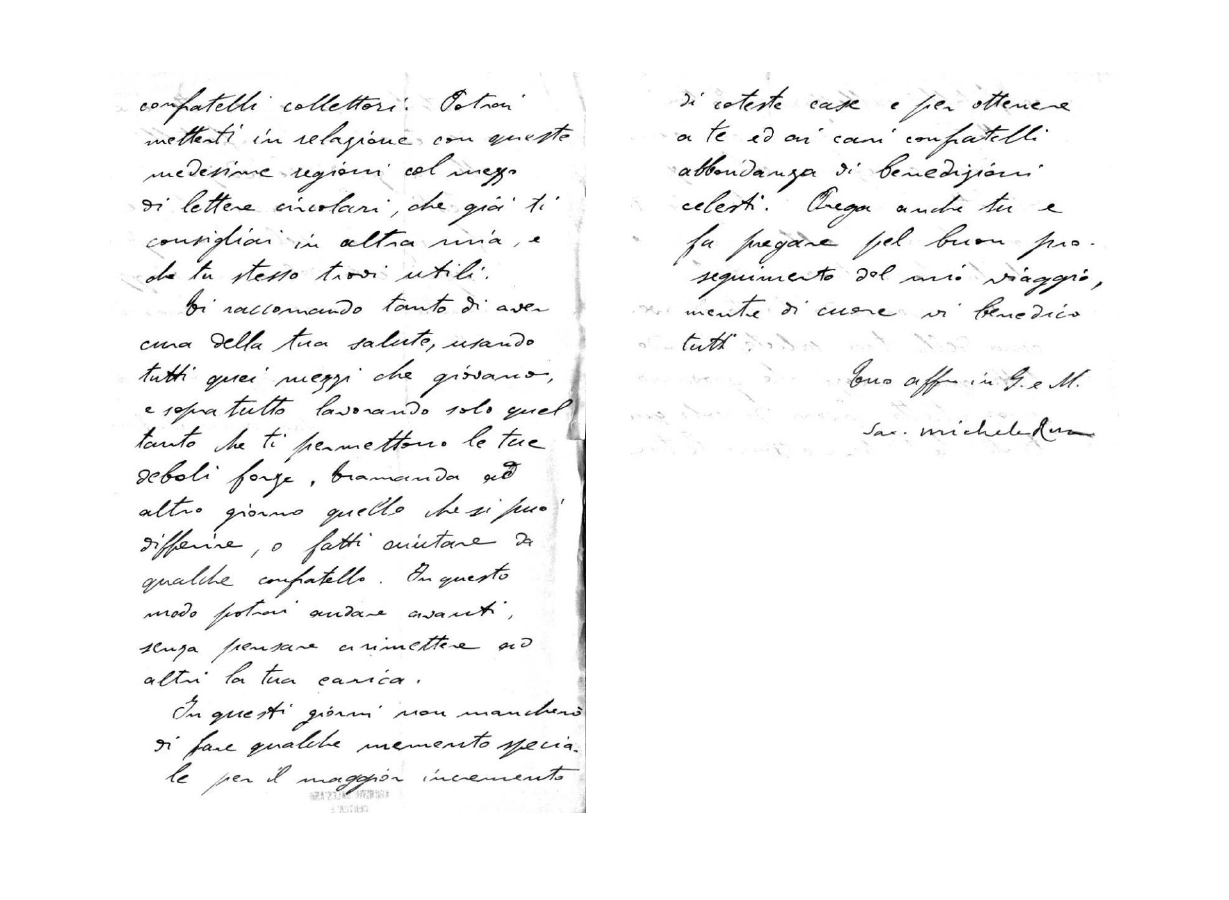 confratelli collettori. Potrai
metterti in relazione con queste
medesime regioni col mezzo
di lettere circolari, che già ti
consigliai in altra mia, e
che tu stesso trovi utili.
Ti raccomando tanto di aver
cura della tua salute, usando
tutti quei mezzi che giovano,
e sopra tutto lavorando solo quel
tanto che ti permettono le tue
deboli forze, tramanda ad
altro giorno quello che si può
differire, o fatti aiutare da
qualche confratello. In questo
modo potrai andare avanti,
senza pensare a rimettere ad
altri la tua carica.
In questi giorni non mancherò
di fare qualche memento specia-
le per il maggior incremento
di coteste case e per ottenere
a te ed ai cari confratelli
abbondanza di benedizioni
celesti. Prega anche tu e
fa pregare pel buon pro-
seguimento del mio viaggio,
mentre di cuore vi benedico
tutti.
Tuo aff in G. e M.
Sac. Michele Rua